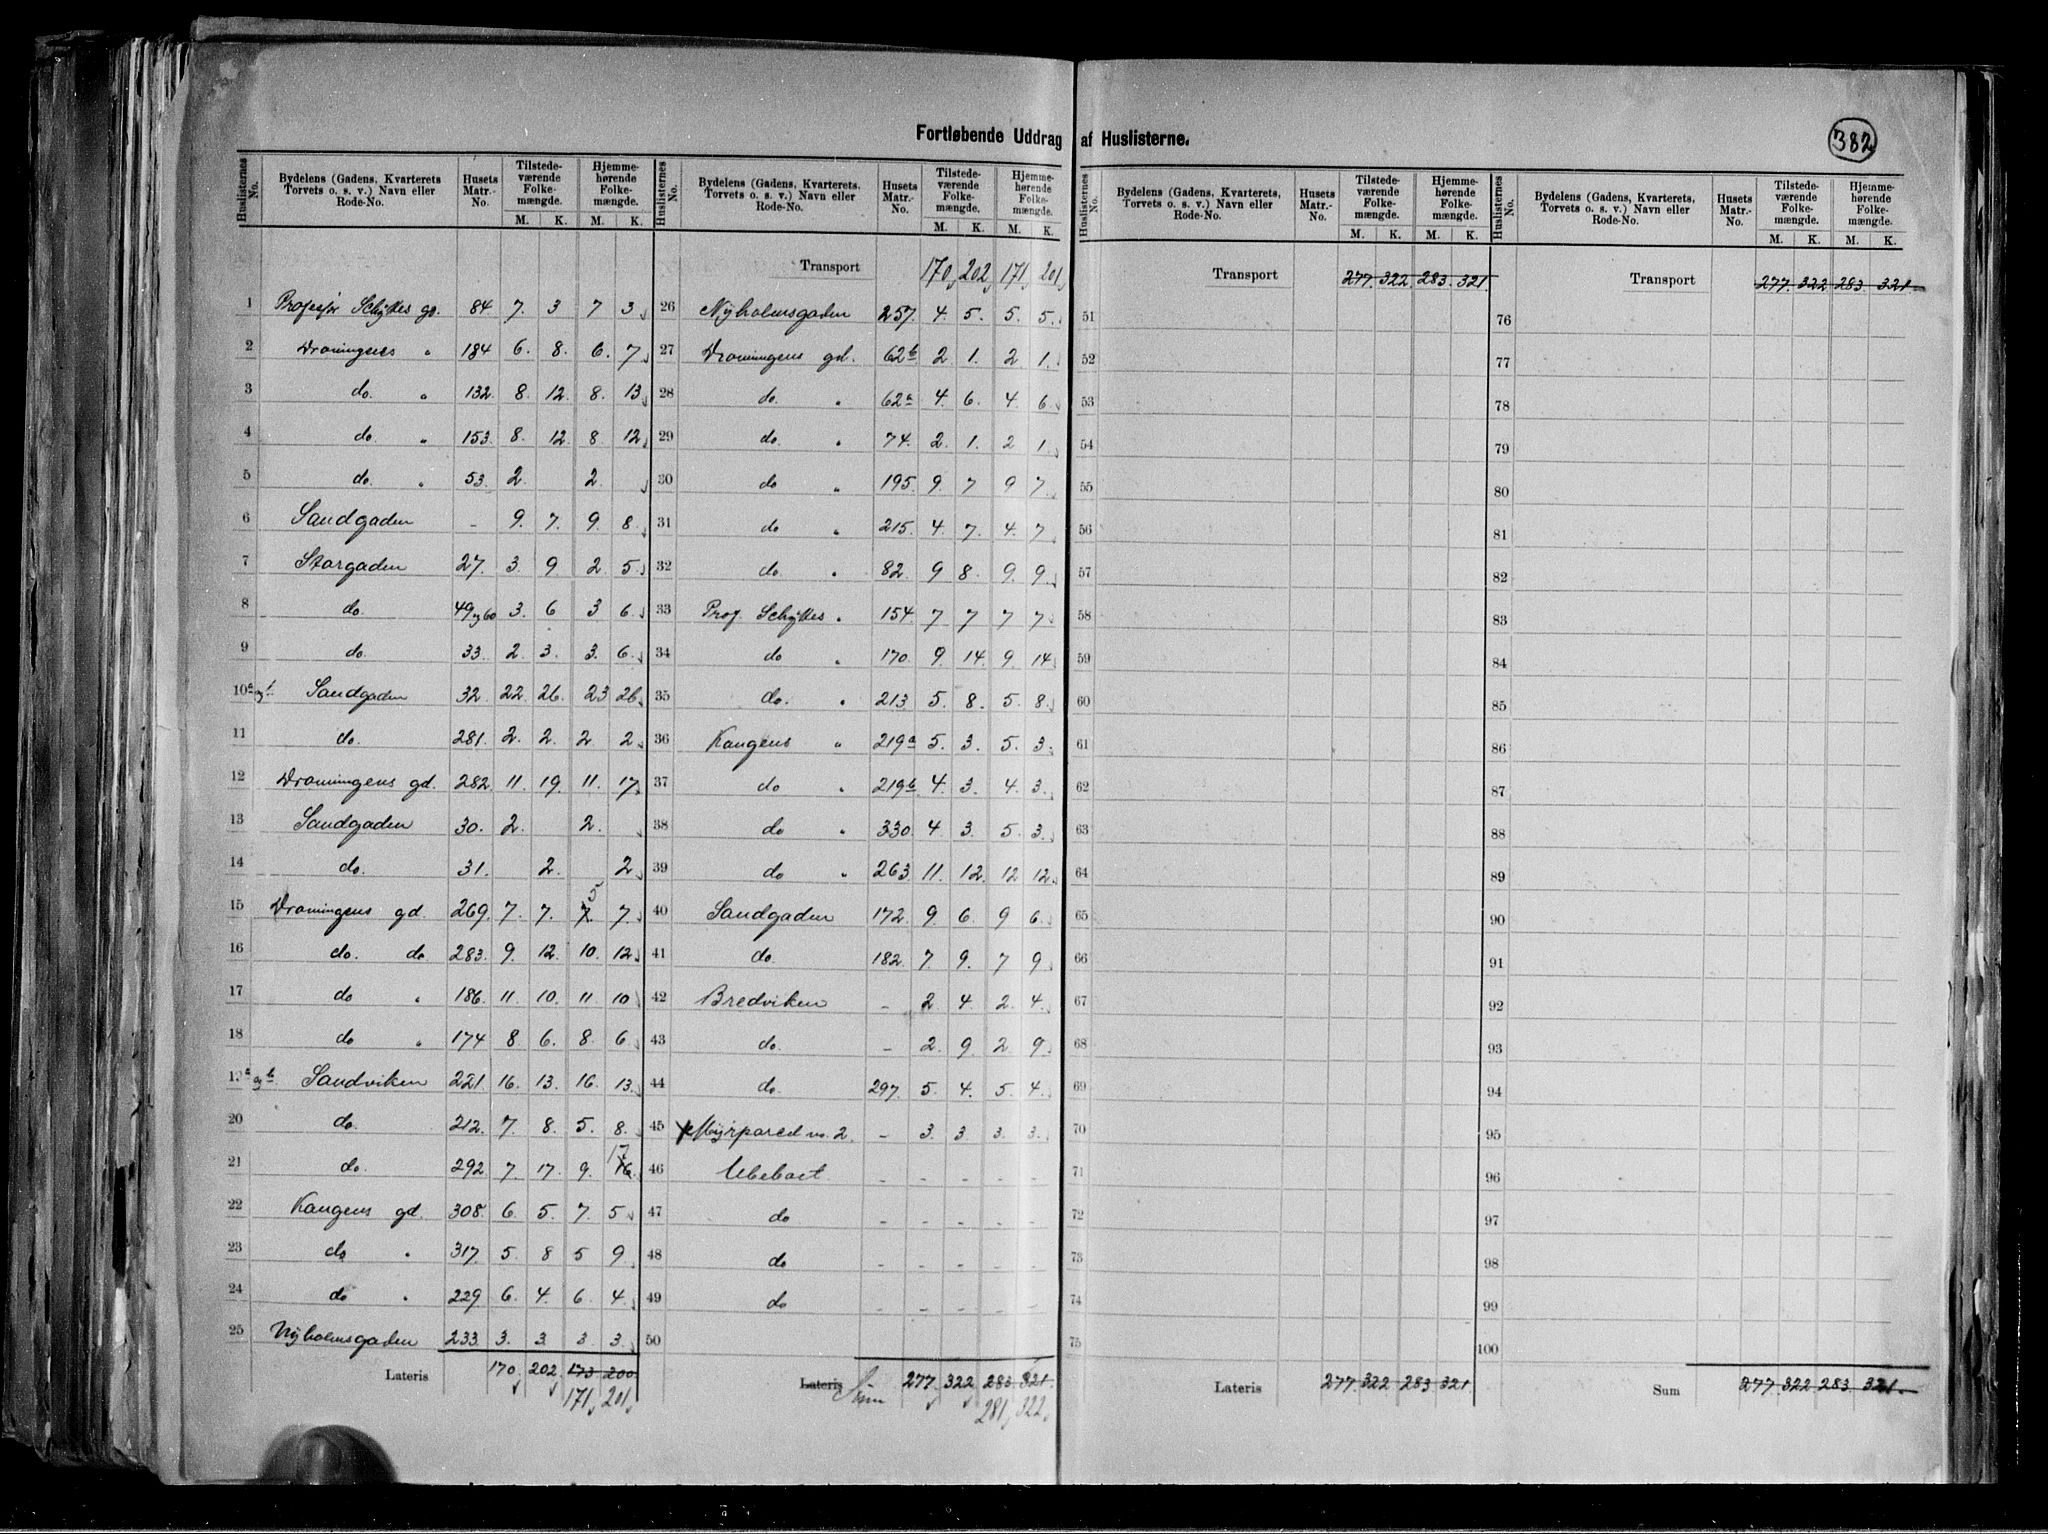 Fortløbende Uddrag af Huslisterne.
382
Huslisternes No. | Bydelens (Gadens, Kvarterets, Torvets o. s. v.) Navn eller Rode-No. | Husets Matr.-No. | Tilstedeværende Folkemængde. M. K. | Hjemmehørende Folkemængde. M. K.
1 Professor Schyttes gd. 84 7. 3 7 3
2 Dronningens " 184 6. 8. 6. 7
3 do. " 132. 8. 12. 8. 13
4 do. " 153. 8. 12. 8. 12
5 do. " 53. 2. 2.
6 Sandgaden - 9. 7. 9. 8
7 Storgaden 27. 3. 9 2. 5.
8 do. 49 og 60 3. 6 3 6.
9 do. 33. 2. 3. 3. 6.
10a og b Sandgaden 32. 22. 26. 23 26.
11 do. 281. 2. 2. 2 2.
12 Dronningens gd. 282. 11. 19. 11. 17.
13 Sandgaden 30. 2. 2.
14 do. 31. 2. 2
15 Dronningens gd. 269. 7. 7. 7. 5 7.
16 do. do 283. 9. 12. 10. 12
17 do " 186. 11. 10. 11. 10
18 do " 174 8. 6. 8. 6
19a og b Sandviken 221 16. 13. 16. 13.
20 do. 212. 7. 8. 5. 8.
21 do. 292 7 17. 9. 16. 17
22 Kongens gd. 308. 6. 5. 7. 5
23 do " 317. 5. 8 5 9
24 do " 229. 6. 4. 6. 4.
25 Nyholmsgaden 233. 3. 3. 3 3.
Lateris 170 202 173 200
171 201
Huslisternes No. | Bydelens (Gadens, Kvarterets, Torvets o. s. v.) Navn eller Rode-No. | Husets Matr.-No. | Tilstedeværende Folkemængde. M. K. | Hjemmehørende Folkemængde. M. K.
Transport 170 202 171 201
26 Nyholmsgaden 257. 4. 5. 5. 5.
27 Dronningens gd. 62b 2 1. 2 1.
28 do. " 62a 4. 6. 4. 6.
29 do. " 74. 2. 1. 2 1.
30 do " 195. 9. 7 9 7.
31 do " 215. 4. 7. 4. 7
32 do. " 82. 9 8. 9. 9.
33 Prof. Schyttes " 154. 7 7 7 7
34 do " 170. 9. 14. 9. 14
35 do. " 213 5. 8. 5. 8.
36 Kongens " 219a 5. 3. 5. 3.
37 do " 219b 4. 3. 4. 3.
38 do " 330. 4 3. 5. 3.
39 do " 263. 11. 12. 12 12.
40 Sandgaden 172. 9. 6. 9 6.
41 do. 182. 7. 9. 7 9
42 Bredviken - 2. 4. 2. 4.
43 do. - 2. 9. 2. 9.
44 do. 297. 5. 4. 5 4.
45 Myrparcel no. 2. - 3. 3 3. 3.
46 Ubeboet. - - - - -
47 do - - - - -
48 do - - - - -
49 do - - - - -
50
Lateris Sum 277. 322. 283. 321.
281 322
Huslisternes No. | Bydelens (Gadens, Kvarterets, Torvets o. s. v.) Navn eller Rode-No. | Husets Matr.-No. | Tilstedeværende Folkemængde. M. K. | Hjemmehørende Folkemængde. M. K.
Transport 277. 322. 283. 321.
51
52
53
54
55
56
57
58
59
60
61
62
63
64
65
66
67
68
69
70
71
72
73
74
75
Lateris 277. 322 283 321.
Huslisternes No. | Bydelens (Gadens, Kvarterets, Torvets o. s. v.) Navn eller Rode-No. | Husets Matr.-No. | Tilstedeværende Folkemængde. M. K. | Hjemmehørende Folkemængde. M. K.
Transport 277. 322 283 321.
76
77
78
79
80
81
82
83
84
85
86
87
88
89
90
91
92
93
94
95
96
97
98
99
100
Sum 277. 322. 283. 321.